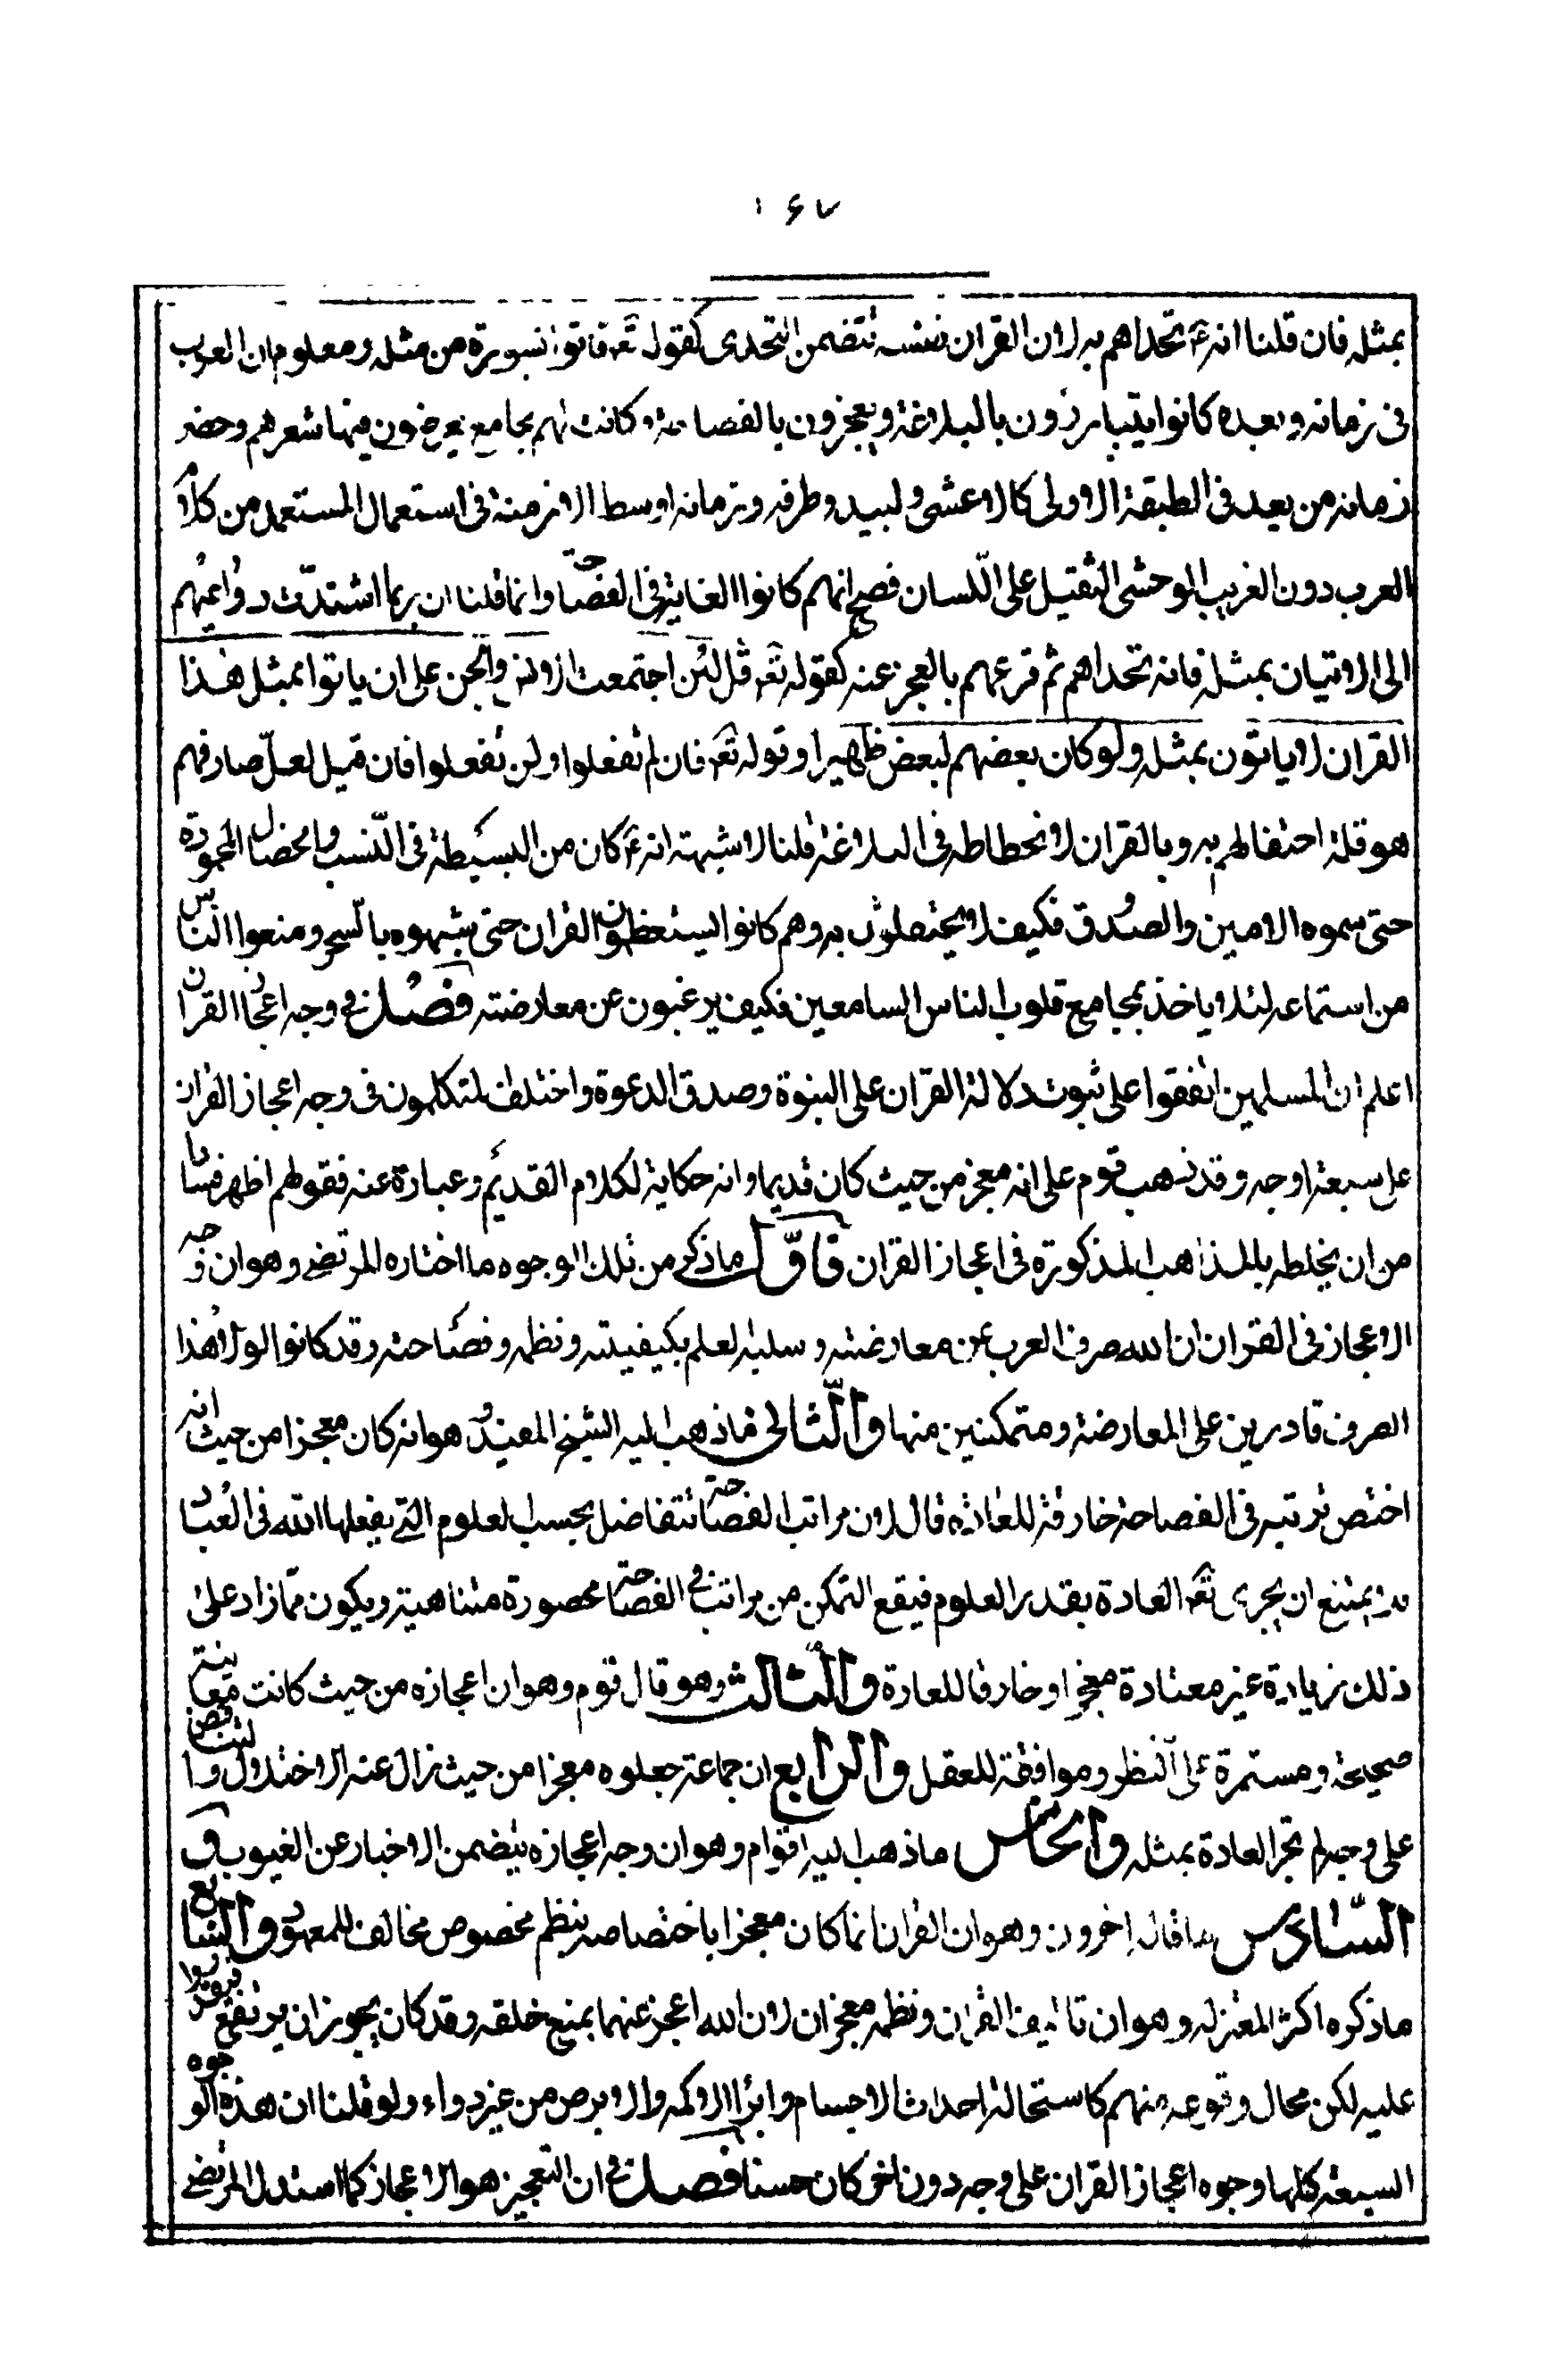 ١٦٧
بمثله فان قلنا انه ع تحداهم به لان القران نفسه تتضمن التحدى كقوله تعه فاتوا بسورة من مثله ومعلوم ان العرب
فى زمانه وبعده كانوا يتبارزون بالبلاغة ويعجزون بالفصاحة وكانت لهم مجامع يعرضون فيها شعرهم وحضر
زمانه من يعد فى الطبقة الاولى كالاعشى ولبيد وطرفه وزمانه اوسط الازمنة فى استعمال المستعمل من كلام
العرب دون الغريب الوحشى الثقيل على اللسان فصح انهم كانوا الغاية فى الفصاحة وانما قلنا ان ربما اشتدّت دواعيهم
الى الاتيان بمثله فانه تحداهم ثم قرعهم بالعجز عنه كقوله تعه قل لئن اجتمعت الانس والجن على ان ياتوا بمثل هذا
القران لا ياتون بمثله ولو كان بعضهم لبعض ظهيرا وقوله تعه فان لم تفعلوا ولن تفعلوا فان قيل لعلّ صارفهم
هو قلة احتفالهم به وبالقران لانحطاطه فى البلاغة قلنا لا شبهة انه ع كان من البسيطة فى النّسب والخصال المحمودة
حتى سموه الامين والصدوق فكيف لا يحتفلون به وهم كانوا يستعظمون القران حتى شبهوه بالسحر ومنعوا الناس
من استماعه لئلا ياخذ بمجامع قلوب الناس السامعين فكيف يرغبون عن معارضته فصل فى وجه اعجاز القران
اعلم ان المسلمين اتفقوا على ثبوت دلالة القران على النبوة وصدق الدعوة واختلف المتكلمون فى وجه اعجاز القران
على سبعة اوجه وقد ذهب قوم على انه معجز من حيث كان قديما وانه حكاية لكلام القديم وعبارة عنه فقولهم اظهر فسادا
من ان يخلطه بالمذاهب المذكورة فى اعجاز القران فاوّل ما ذكر من تلك الوجوه ما اختاره المرتضى وهو ان وجه
الاعجاز فى القران ان الله صرف العرب عن معارضته وسلبهم العلم بكيفيته ونظمه وفصاحته وقد كانوا لولا هذا
الصرف قادرين على المعارضة ومتمكنين منها والثّانى ما ذهب اليه الشيخ المفيد وهو انه كان معجزا من حيث انه
اختص برتبة فى الفصاحة خارقة للعادة قال لان مراتب الفصاحة تتفاضل بحسب العلوم التى يفعلها الله فى العباد
فلا يمتنع ان يجرى تعه العادة بقدر العلوم فيقع التمكن من مراتب فى الفصاحة محصورة متناهية ويكون ممّا زاد على
ذلك زيادة غير معتادة معجزا وخارقا للعادة والثالث وهو قال قوم وهو ان اعجازه من حيث كانت معانيه
صحيحة ومستمرة على النظر وموافقة للعقل والرابع ان جماعة جعلوه معجزا من حيث زال عنه الاختلال والتناقض
على وجه لم تجر العادة بمثله والخامس ما ذهب اليه اقوام وهو ان وجه اعجازه يتضمن الاخبار عن الغيوب و
السّادس ما قاله اخرون وهو ان القران انما كان معجزا باختصاصه بنظم مخصوص مخالف للمعهود والسابع
ما ذكره اكثر المعتزله وهو ان تاليف القران ونظمه معجزان لان الله اعجز عنهما بمنع خلقه وقد كان يجوز ان يرتفع فيقدروا
عليه لكن محال وقوعه منهم كاستحالة احداث الاجسام وابراا الاكمه والابرص من غير دواء ولو قلنا ان هذه الوجوه
السبعة كلها وجوه اعجاز القران على وجه دون اخر كان حسنا فصل فى ان التعجيز هو الاعجاز كما استدل المرتضى